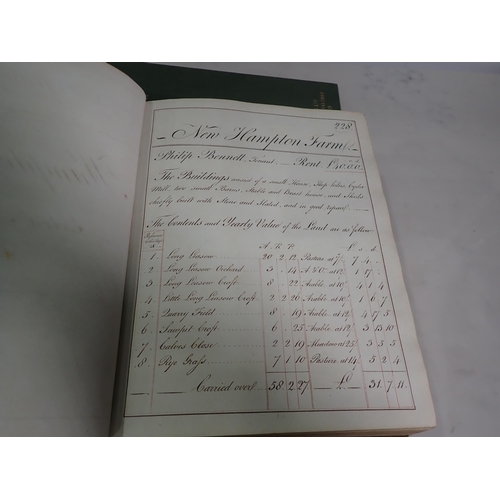 228
New Hampton Farm
Philip Bonnell, Tenant. Rent
The Buildings consist of a small House, Shop below, Cyder
Mill, two small Barns, Stable and Beast house, and Sheds
chiefly built with Stone and Slated, and in good repair.
The Contents and Yearly Value of the Land are as follow
A. R. P. £. s. d.
1 Long Leasow 20 2 12 Pasture at 7/ 7 4
2 Long Leasow Orchard 3 . 14 A & O at 12/ 1 17
3 Long Leasow Croft 8 . 22 Arable at 10/ 4 1 4
4 Little Long Leasow Croft 2 2 20 Arable at 10/ 1 6 7
5 Quarry Field 8 . 19 Arable at 12/ 4 17 5
6 Sawpit Croft 6 . 25 Arable at 12/ 3 13 10
7 Calves Close 2 2 19 Meadow at 25/ 3 5 5
8 Rye Grass 7 1 10 Pasture at 14/ 5 2 4
Carried over 58 2 27 £ 31 7 11